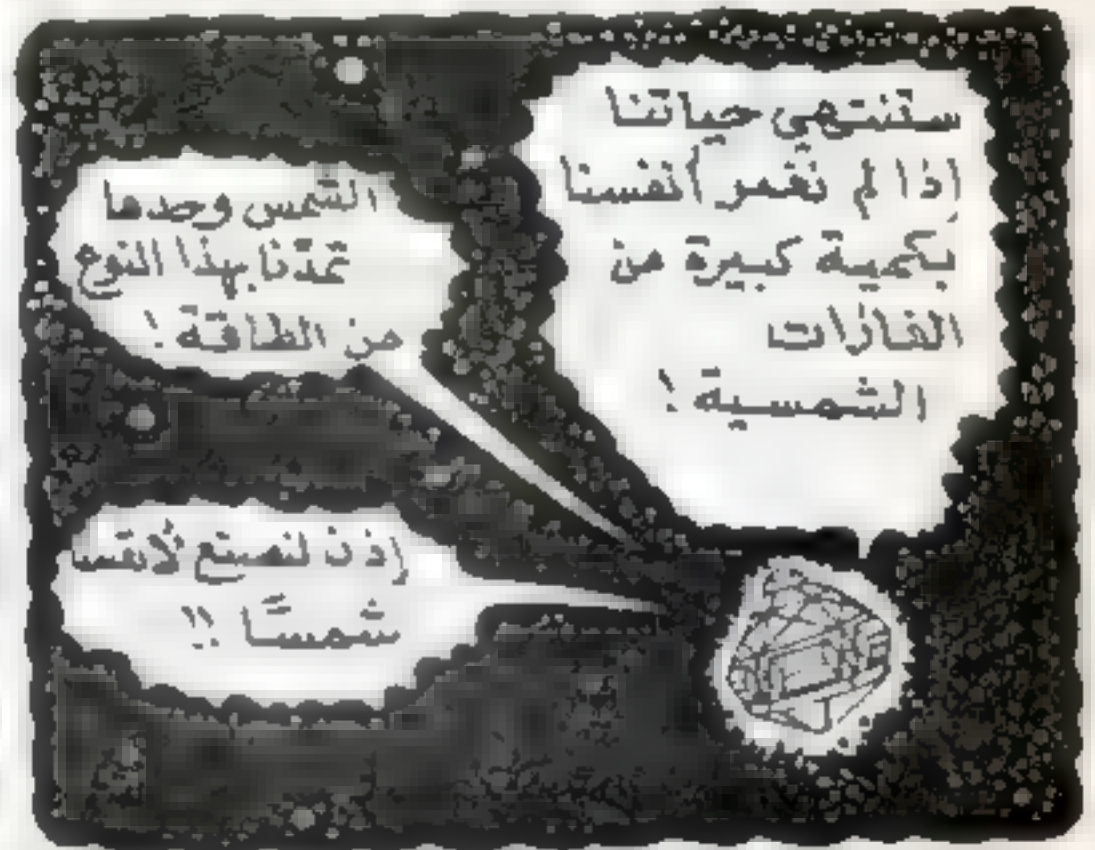 ستنتهي حياتنا
إذا لم نغمر أنفسنا
بكمية كبيرة من
الغازات
الشمسية !
الشمس وحدها
تمدّنا بهذا النوع
من الطاقة !
إذن لنصنع لأنفسنا
شمسًا !!